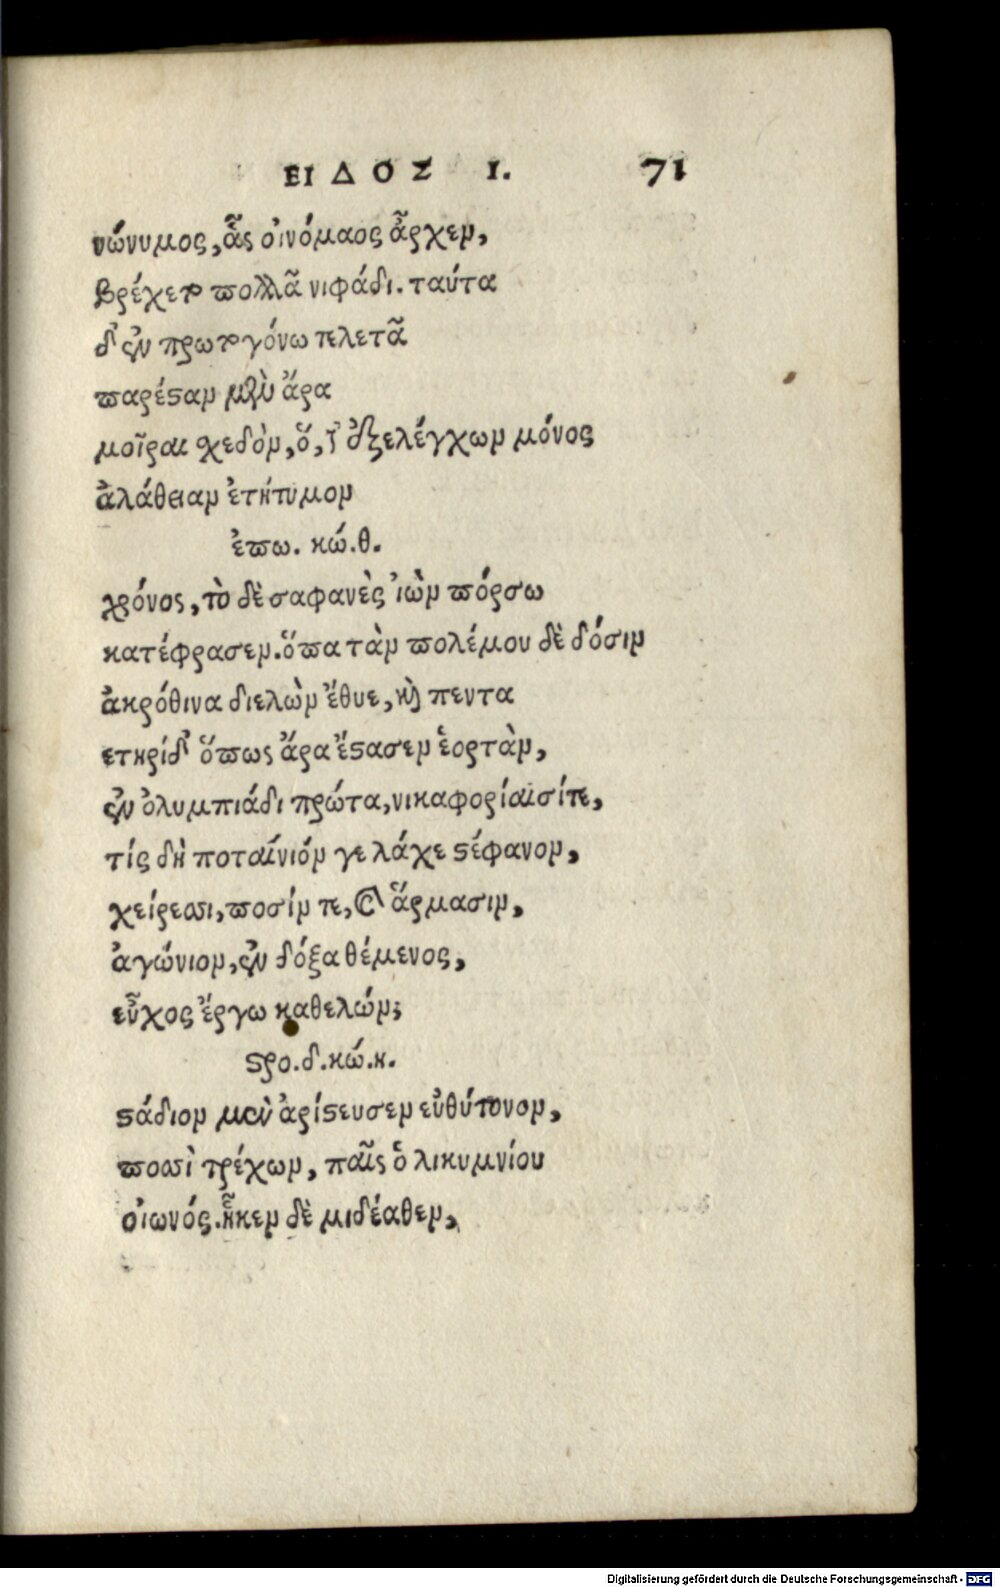 ΕΙΔΟΣ Ι. 71
νώνυμος, ἇς οἰνόμαος ἆρχεν,
βρέχετο πολλᾶ νιφάδι. ταύτα
δ' ἐν πρωτογόνω τελετᾶ
παρέσταν μὲν ἄρα
μοῖραι σχεδὸν, ὅ, τ' ἐξελέγχων μόνος
ἀλάθειαν ἐτήτυμον
ἐπω. κώ. θ.
χρόνος, τὸ δὲ σαφανὲς ἰὼν πόρσω
κατέφρασεν. ὅπα τὰν πολέμου δὲ δόσιν
ἀκρόθινα διελὼν ἔθυε, καὶ πεντα
ετηρίδ' ὅπως ἄρα ἔστασεν ἑορτὰν,
ἐν ὀλυμπιάδι πρώτα, νικαφορίαισίτε,
τίς δὴ ποταίνιόν γε λάχε στέφανον,
χείρεσσι, ποσίν τε, καὶ ἅρμασιν,
ἀγώνιον, ἐν δόξα θέμενος,
εὖχος ἔργω καθελών;
στρο. δ. κώ. η.
στάδιον μὲν ἀρίστευσεν εὐθύτονον,
ποσσὶ τρέχων, παῖς ὁ λικυμνίου
οἰωνός. ἧκεν δὲ μιδέαθεν,
Digitalisierung gefördert durch die Deutsche Forschungsgemeinschaft - DFG